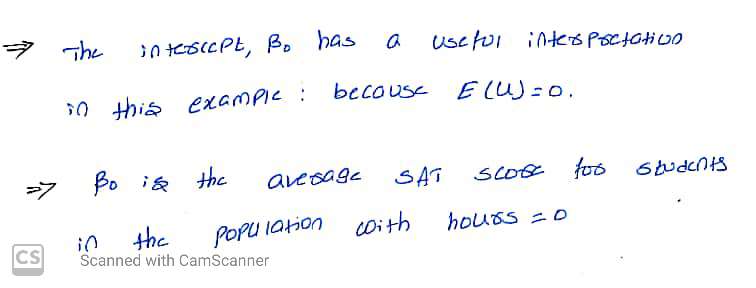 ⇒ The intercept, β₀ has a useful interpretation
in this example : because E(u)=0.
⇒ β₀ is the average SAT score for students
in the population with hours = 0
CS Scanned with CamScanner